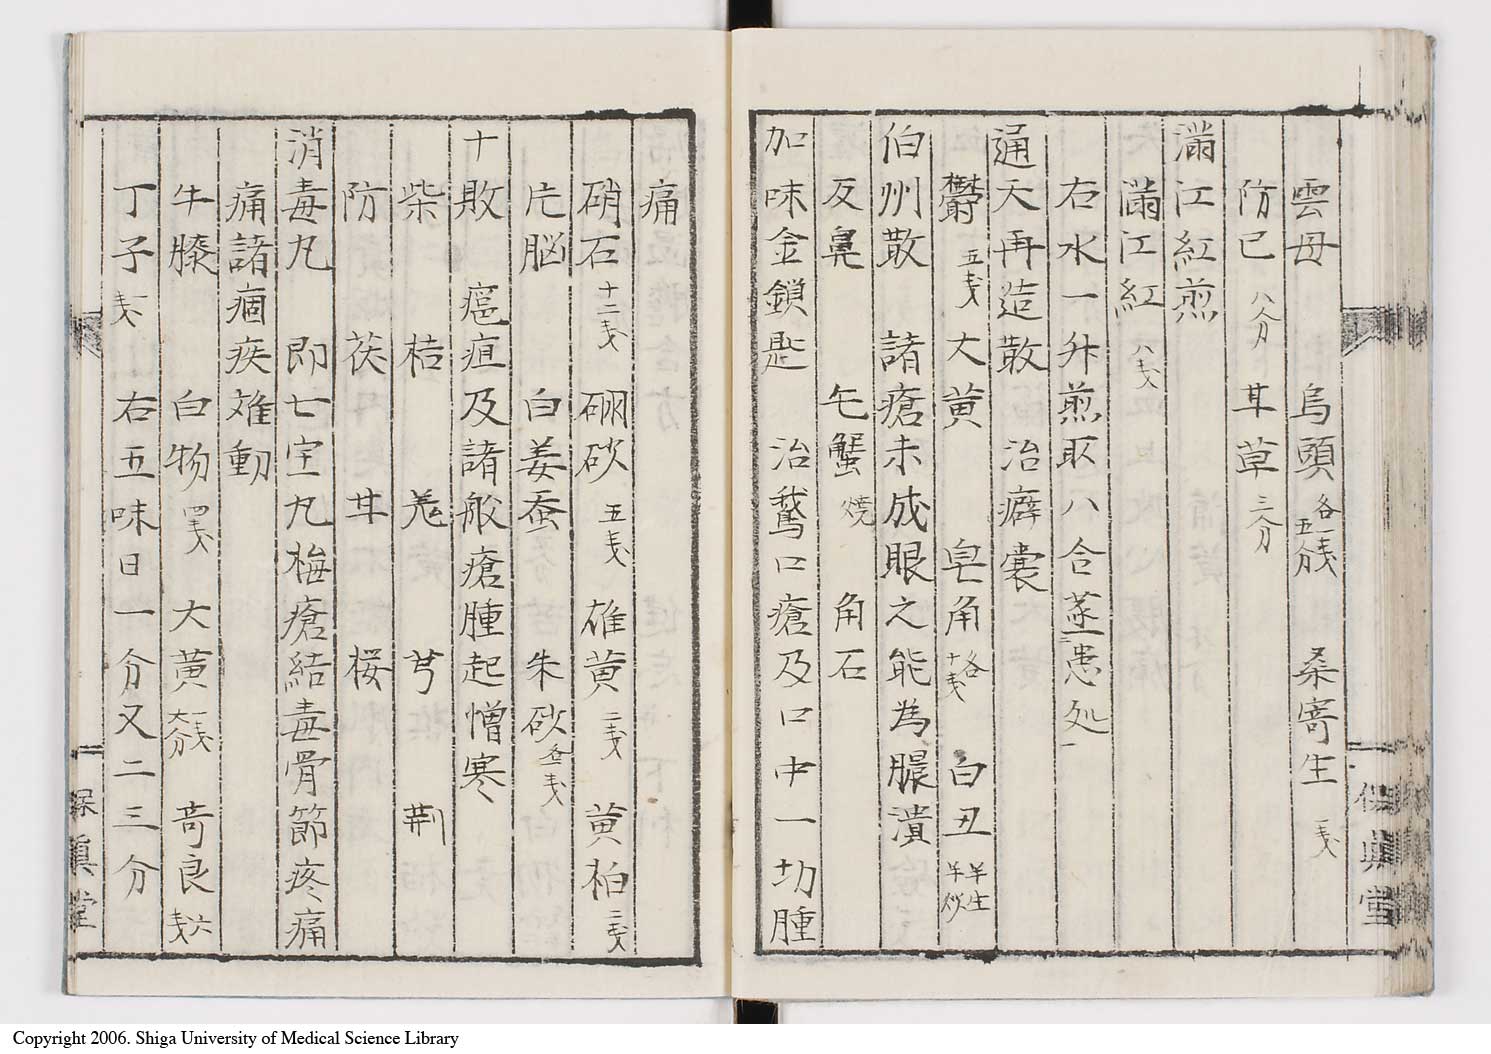 雲母 烏頭 各一戔五分 桑寄生 一戔
防已 八分 甘草 三分
滿江紅煎
滿江紅 八戔
右水一升煎取八合蒸患処
通天再造散 治癖裳
鬱 五戔 大黄 皂角 各十戔 白丑 半生半炒
伯州散 諸瘡未成眼之能為膿潰
反鼻 乇蟹 焼 角石
加味金鎖匙 治鵞口瘡及口中一切腫
痛
硝石 十二戔 硼砂 五戔 雄黄 二戔 黄柏 二戔
片脳 白姜蚕 朱砂 各一戔
十敗 瘟疽及諸般瘡腫起憎寒
柴 桔 羗 芎 荆
防 茯 甘 桜
消毒丸 即七宝丸梅瘡結毒骨節疼痛
痛諸痼疾难動
牛膝 白物 四戔 大黄 一戔六分 奇良 六戔
丁子 一戔 右五味日一分又二三分
保眞堂